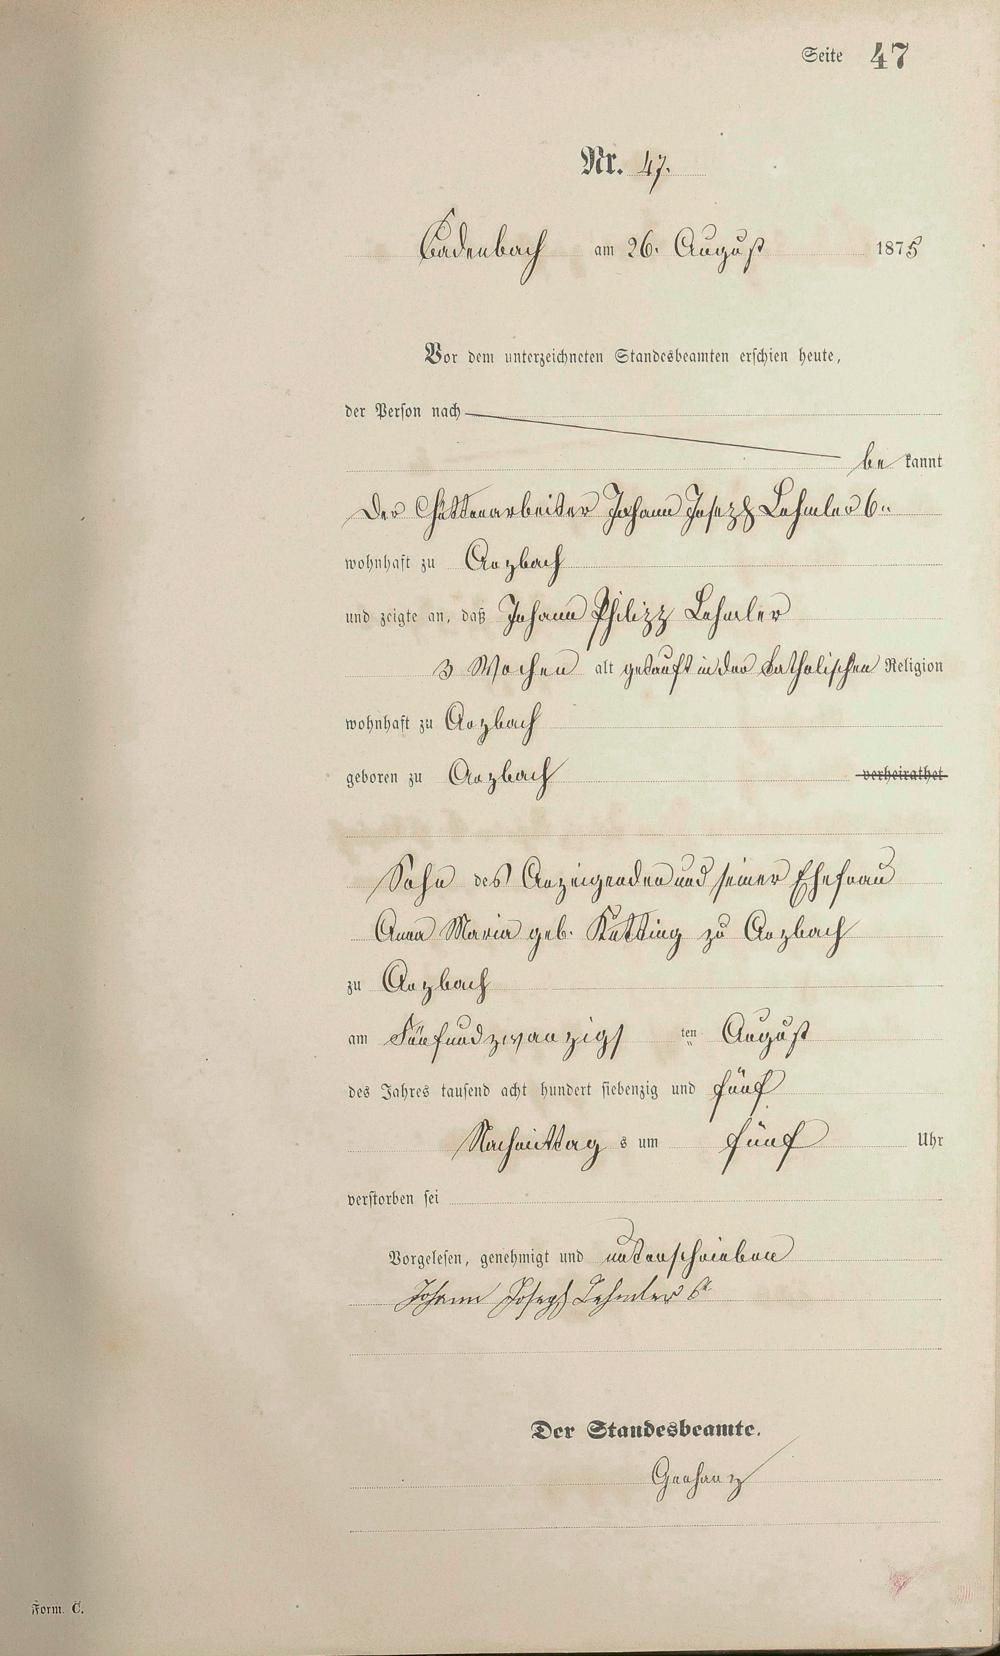 Seite 47
Nr. 47.
Cadenbach am 26. August 1875
Vor dem unterzeichneten Standesbeamten erschien heute,
der Person nach
be kannt
der Hüttenarbeiter Johann Joseph Lehmler 6..
wohnhaft zu Arzbach
und zeigte an, daß Johann Philipp Lehmler
3 Wochen alt getauft in der katholischen Religion
wohnhaft zu Arzbach
geboren zu Arzbach verheirathet
Sohn des Anzeigenden und seiner Ehefrau
Anna Maria geb. Kutting zu Arzbach
zu Arzbach
am Fünfundzwanzigs ten August
des Jahres tausend acht hundert siebenzig und fünf
Nachmittag s um fünf Uhr
verstorben sei
Vorgelesen, genehmigt und unterschrieben
Johann Joseph Lehmler 6t
Der Standesbeamte.
Form. C.